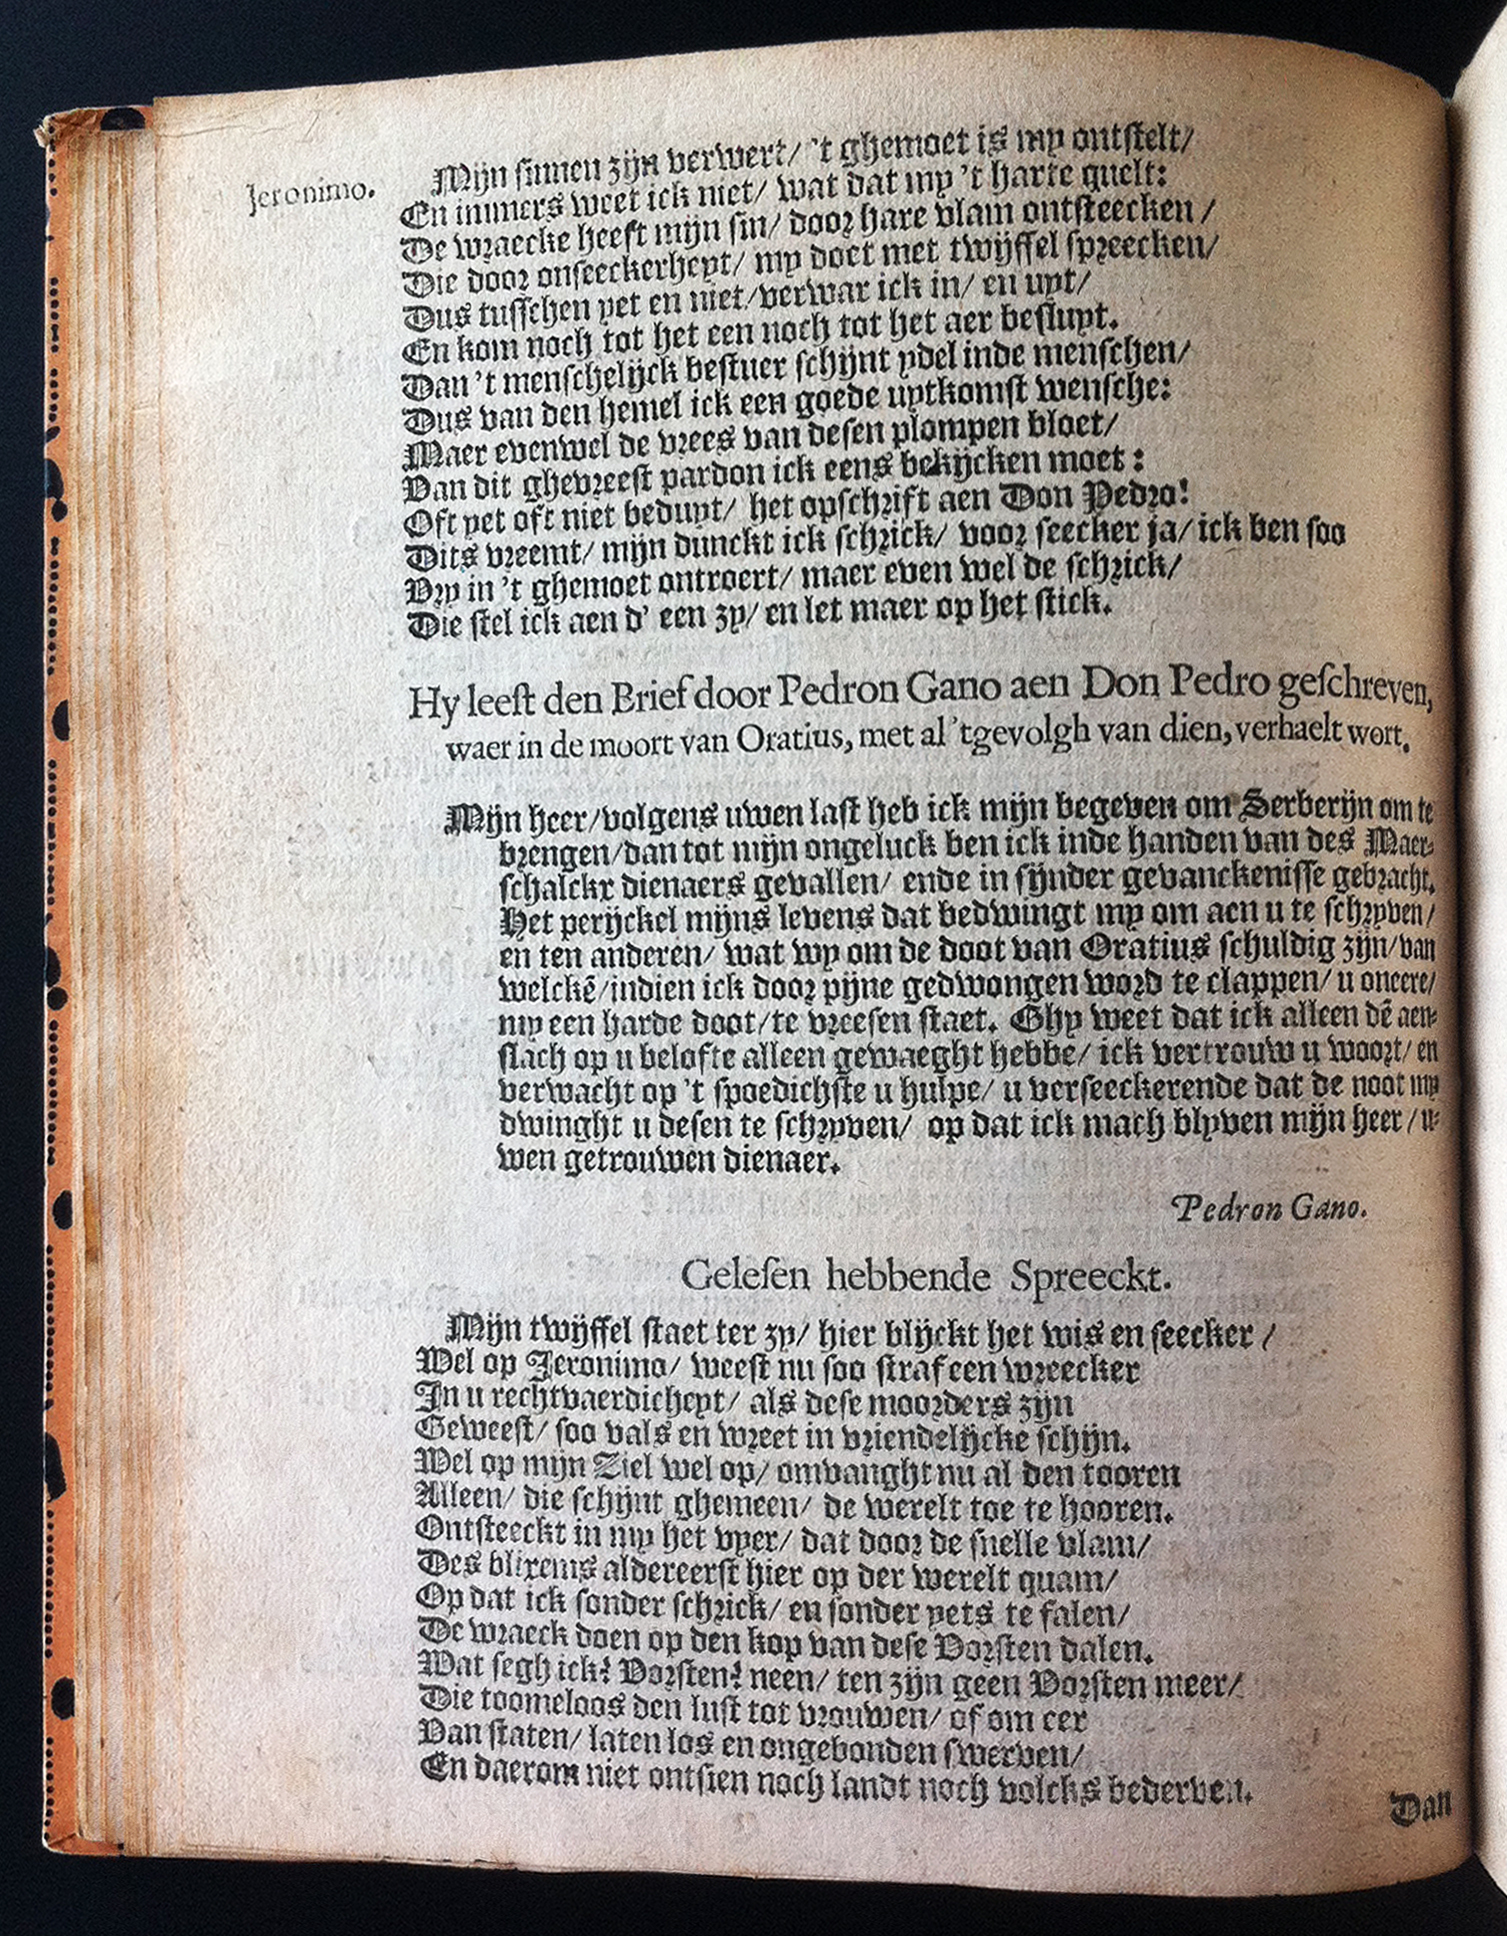 Jeronimo. Mijn sinnen zijn verwert/ 't ghemoet is my ontstelt/
En immers weet ick niet/ wat dat my 't harte quelt:
De wraecke heeft mijn sin/ door hare vlam ontsteecken/
Die door onseeckerheyt/ my doet met twijffel spreecken/
Dus tusschen yet en niet/ verwar ick in/ en uyt/
En kom noch tot het een noch tot het aer besluyt.
Dan 't menschelijck bestuer schijnt ydel inde menschen/
Dus van den hemel ick een goede uytkomst wensche:
Maer evenwel de vrees van desen plompen bloet/
Van dit ghevreest pardon ick eens bekijcken moet:
Oft yet oft niet beduyt/ het opschrift aen Don Pedro!
Dits vreemt/ mijn dunckt ick schrick/ voor seecker ja/ ick ben soo
Vry in 't ghemoet ontroert/ maer even wel de schrick/
Die stel ick aen d' een zy/ en let maer op het stick.
Hy leest den Brief door Pedron Gano aen Don Pedro geschreven,
waer in de moort van Oratius, met al 'tgevolgh van dien, verhaelt wort.
Mijn heer/ volgens uwen last heb ick mijn begeven om Serberijn om te
brengen/ dan tot mijn ongeluck ben ick inde handen van des Maer-
schalckx dienaers gevallen/ ende in sijnder gevanckenisse gebracht.
Het perijckel mijns levens dat bedwingt my om aen u te schryven/
en ten anderen/ wat wy om de doot van Oratius schuldig zijn/ van
welckē/ indien ick door pijne gedwongen word te clappen/ u oneere/
my een harde doot/ te vreesen staet. Ghy weet dat ick alleen dē aen-
slach op u belofte alleen gewaeght hebbe/ ick vertrouw u woort/ en
verwacht op 't spoedichste u hulpe/ u verseeckerende dat de noot my
dwinght u desen te schryven/ op dat ick mach blyven mijn heer/ u-
wen getrouwen dienaer.
Pedron Gano.
Gelesen hebbende Spreeckt.
Mijn twijffel staet ter zy/ hier blijckt het wis en seecker/
Wel op Jeronimo/ weest nu soo straf een wreecker
In u rechtvaerdicheyt/ als dese moorders zijn
Geweest/ soo vals en wreet in vriendelijcke schijn.
Wel op mijn Ziel wel op/ omvanght nu al den tooren
Alleen/ die schijnt ghemeen/ de werelt toe te hooren.
Ontsteeckt in my het vyer/ dat door de snelle vlam/
Des blixems aldereerst hier op der werelt quam/
Op dat ick sonder schrick/ en sonder yets te falen/
De wraeck doen op den kop van dese Vorsten dalen.
Wat segh ick? Vorsten? neen/ ten zijn geen Vorsten meer/
Die toomeloos den lust tot vrouwen/ of om eer
Van staten/ laten los en ongebonden swerven/
En daerom niet ontsien noch landt noch volcks bederven.
Dan